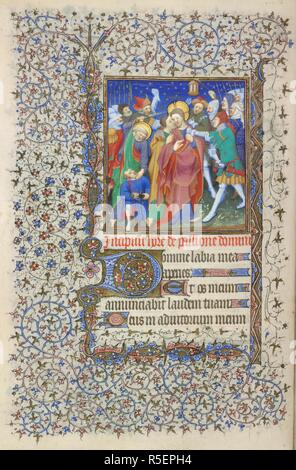 Incipiu[n]t hore de passione domini
Domine labia mea
aperies
Et os meum
annunciabit laudem tuam
Deus in adiutorium meum
alamy
R5EPH4